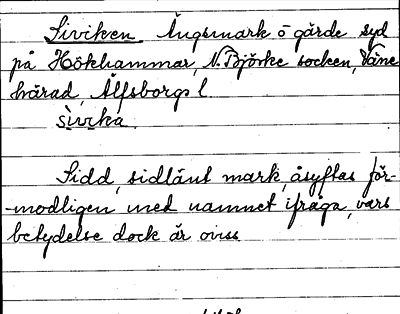 Siviken Ängsmark ō gärde syd
på Hökhammar, N. Björke socken, Väne
härad, Älfsborgs l.
sivika.
Sidd, sidlänt mark, åsyftas för-
-modligen med namnet ifråga, vars
betydelse dock är oviss